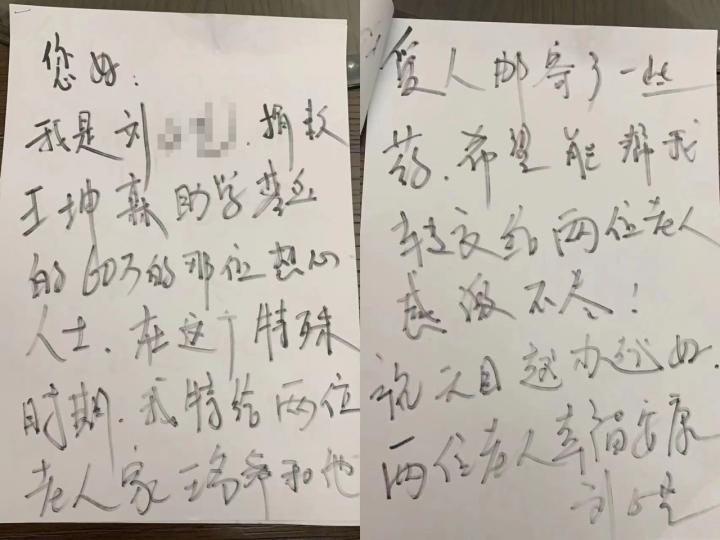 您好:
我是刘 捐款
王坤森助学基金
的60万的那位热心
人士.在这个特殊
时期.我特给两位
老人家王 和他
爱人邮寄了一些
药.希望能帮我
转交给两位老人
感激不尽!
祝天目越办越好.
两位老人幸福安康
刘